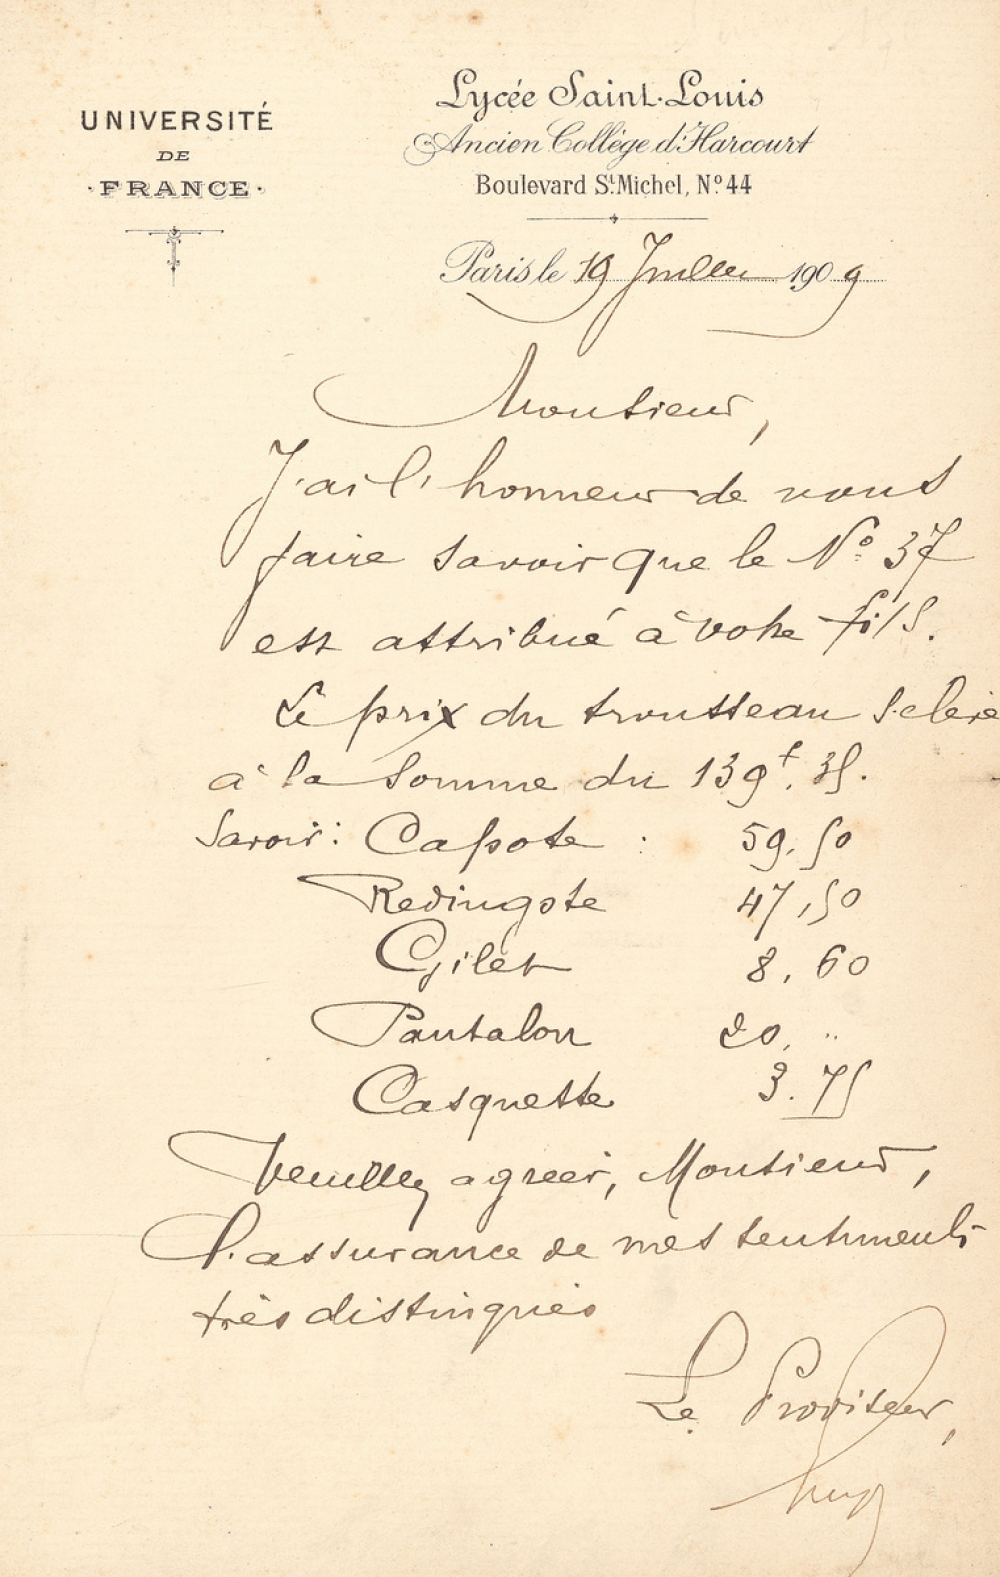 UNIVERSITÉ
DE
FRANCE
Lycée Saint-Louis
Ancien Collège d'Harcourt
Boulevard St Michel, No 44
Paris le 19 Juillet 1909
Monsieur,
J'ai l'honneur de vous
faire savoir que le No 37
est attribué à votre fils.
Le prix du trousseau s'elève
à la somme du 139f.35.
Savoir: Capote : 59.50
Redingote 47,50
Gilet 8,60
Pantalon 20, "
Casquette 3.75
Veuillez agréer, Monsieur,
l'assurance de mes sentiments
très distingués
Le Proviseur,